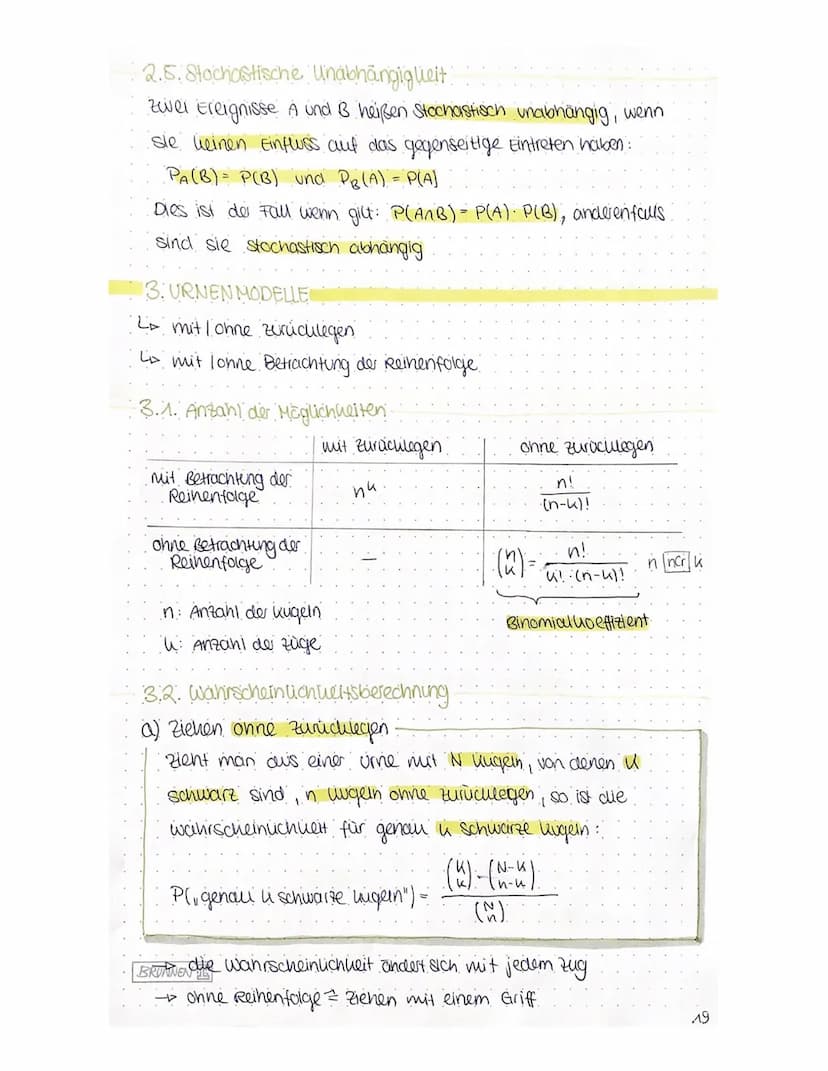 2.5. Stochastische Unabhängigkeit
Zwei Ereignisse A und B heißen stochastisch unabhängig, wenn
sie keinen Einfluss auf das gegenseitige Eintreten haben:
P_A(B) = P(B) und P_B(A) = P(A)
Dies ist der Fall wenn gilt: P(A∩B) = P(A) · P(B), anderenfalls
sind sie stochastisch abhängig
3. URNENMODELLE
↳ mit / ohne Zurücklegen
↳ mit / ohne Betrachtung der Reihenfolge
3.1. Anzahl der Möglichkeiten
mit Zurücklegen | ohne Zurücklegen
mit Betrachtung der Reihenfolge | n^k | n! / (n-k)!
ohne Betrachtung der Reihenfolge | – | (n k) = n! / k! · (n-k)! n nCr k
n: Anzahl der Kugeln
Binomialkoeffizient
k: Anzahl der Züge
3.2. Wahrscheinlichkeitsberechnung
a) Ziehen ohne Zurücklegen
Zieht man aus einer Urne mit N Kugeln, von denen K
schwarz sind, n Kugeln ohne Zurücklegen, so ist die
Wahrscheinlichkeit für genau k schwarze Kugeln:
P(„genau k schwarze Kugeln") = (K k) · (N-K n-k) / (N n)
→ die Wahrscheinlichkeit ändert sich mit jedem Zug
BRUNNEN
→ ohne Reihenfolge ≙ Ziehen mit einem Griff
19